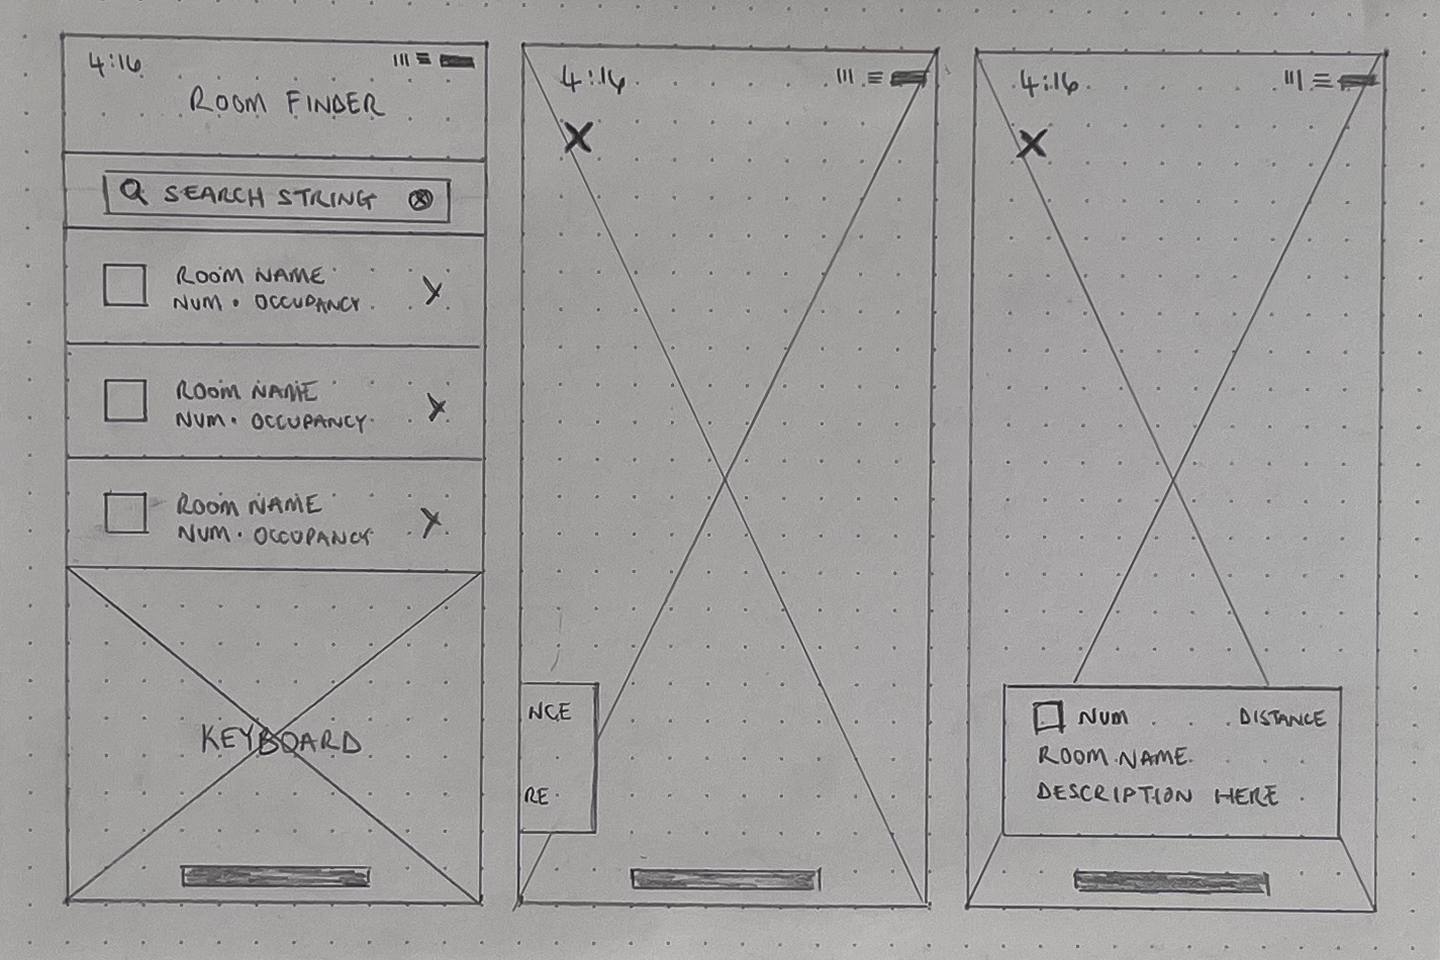 4:16
ROOM FINDER
SEARCH STRING
ROOM NAME
NUM · OCCUPANCY
ROOM NAME
NUM · OCCUPANCY
ROOM NAME
NUM · OCCUPANCY
KEYBOARD
4:16
X
NCE
RE
4:16
X
NUM DISTANCE
ROOM NAME
DESCRIPTION HERE